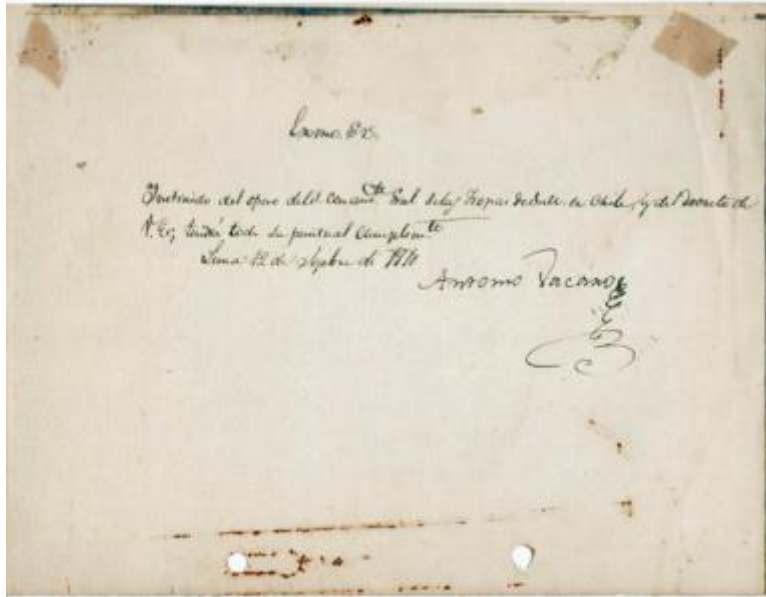 Exmo. Sr.
Instruido del oficio del Comand.te Gral. de las Tropas de en Chile, y del Decreto de
V. Ex, tendrá todo su puntual cumplim.to
Lima 12 de de
Antonio Vacaro